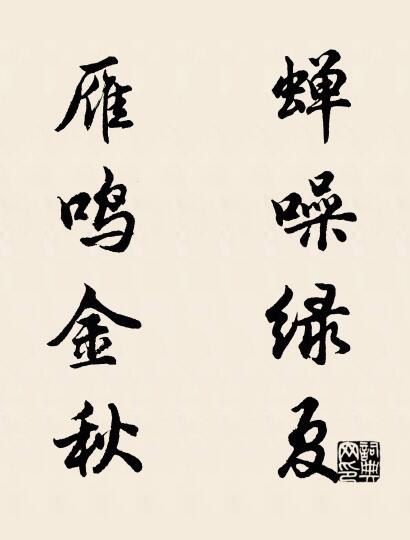 蝉噪绿夏
雁鸣金秋
詞典网印